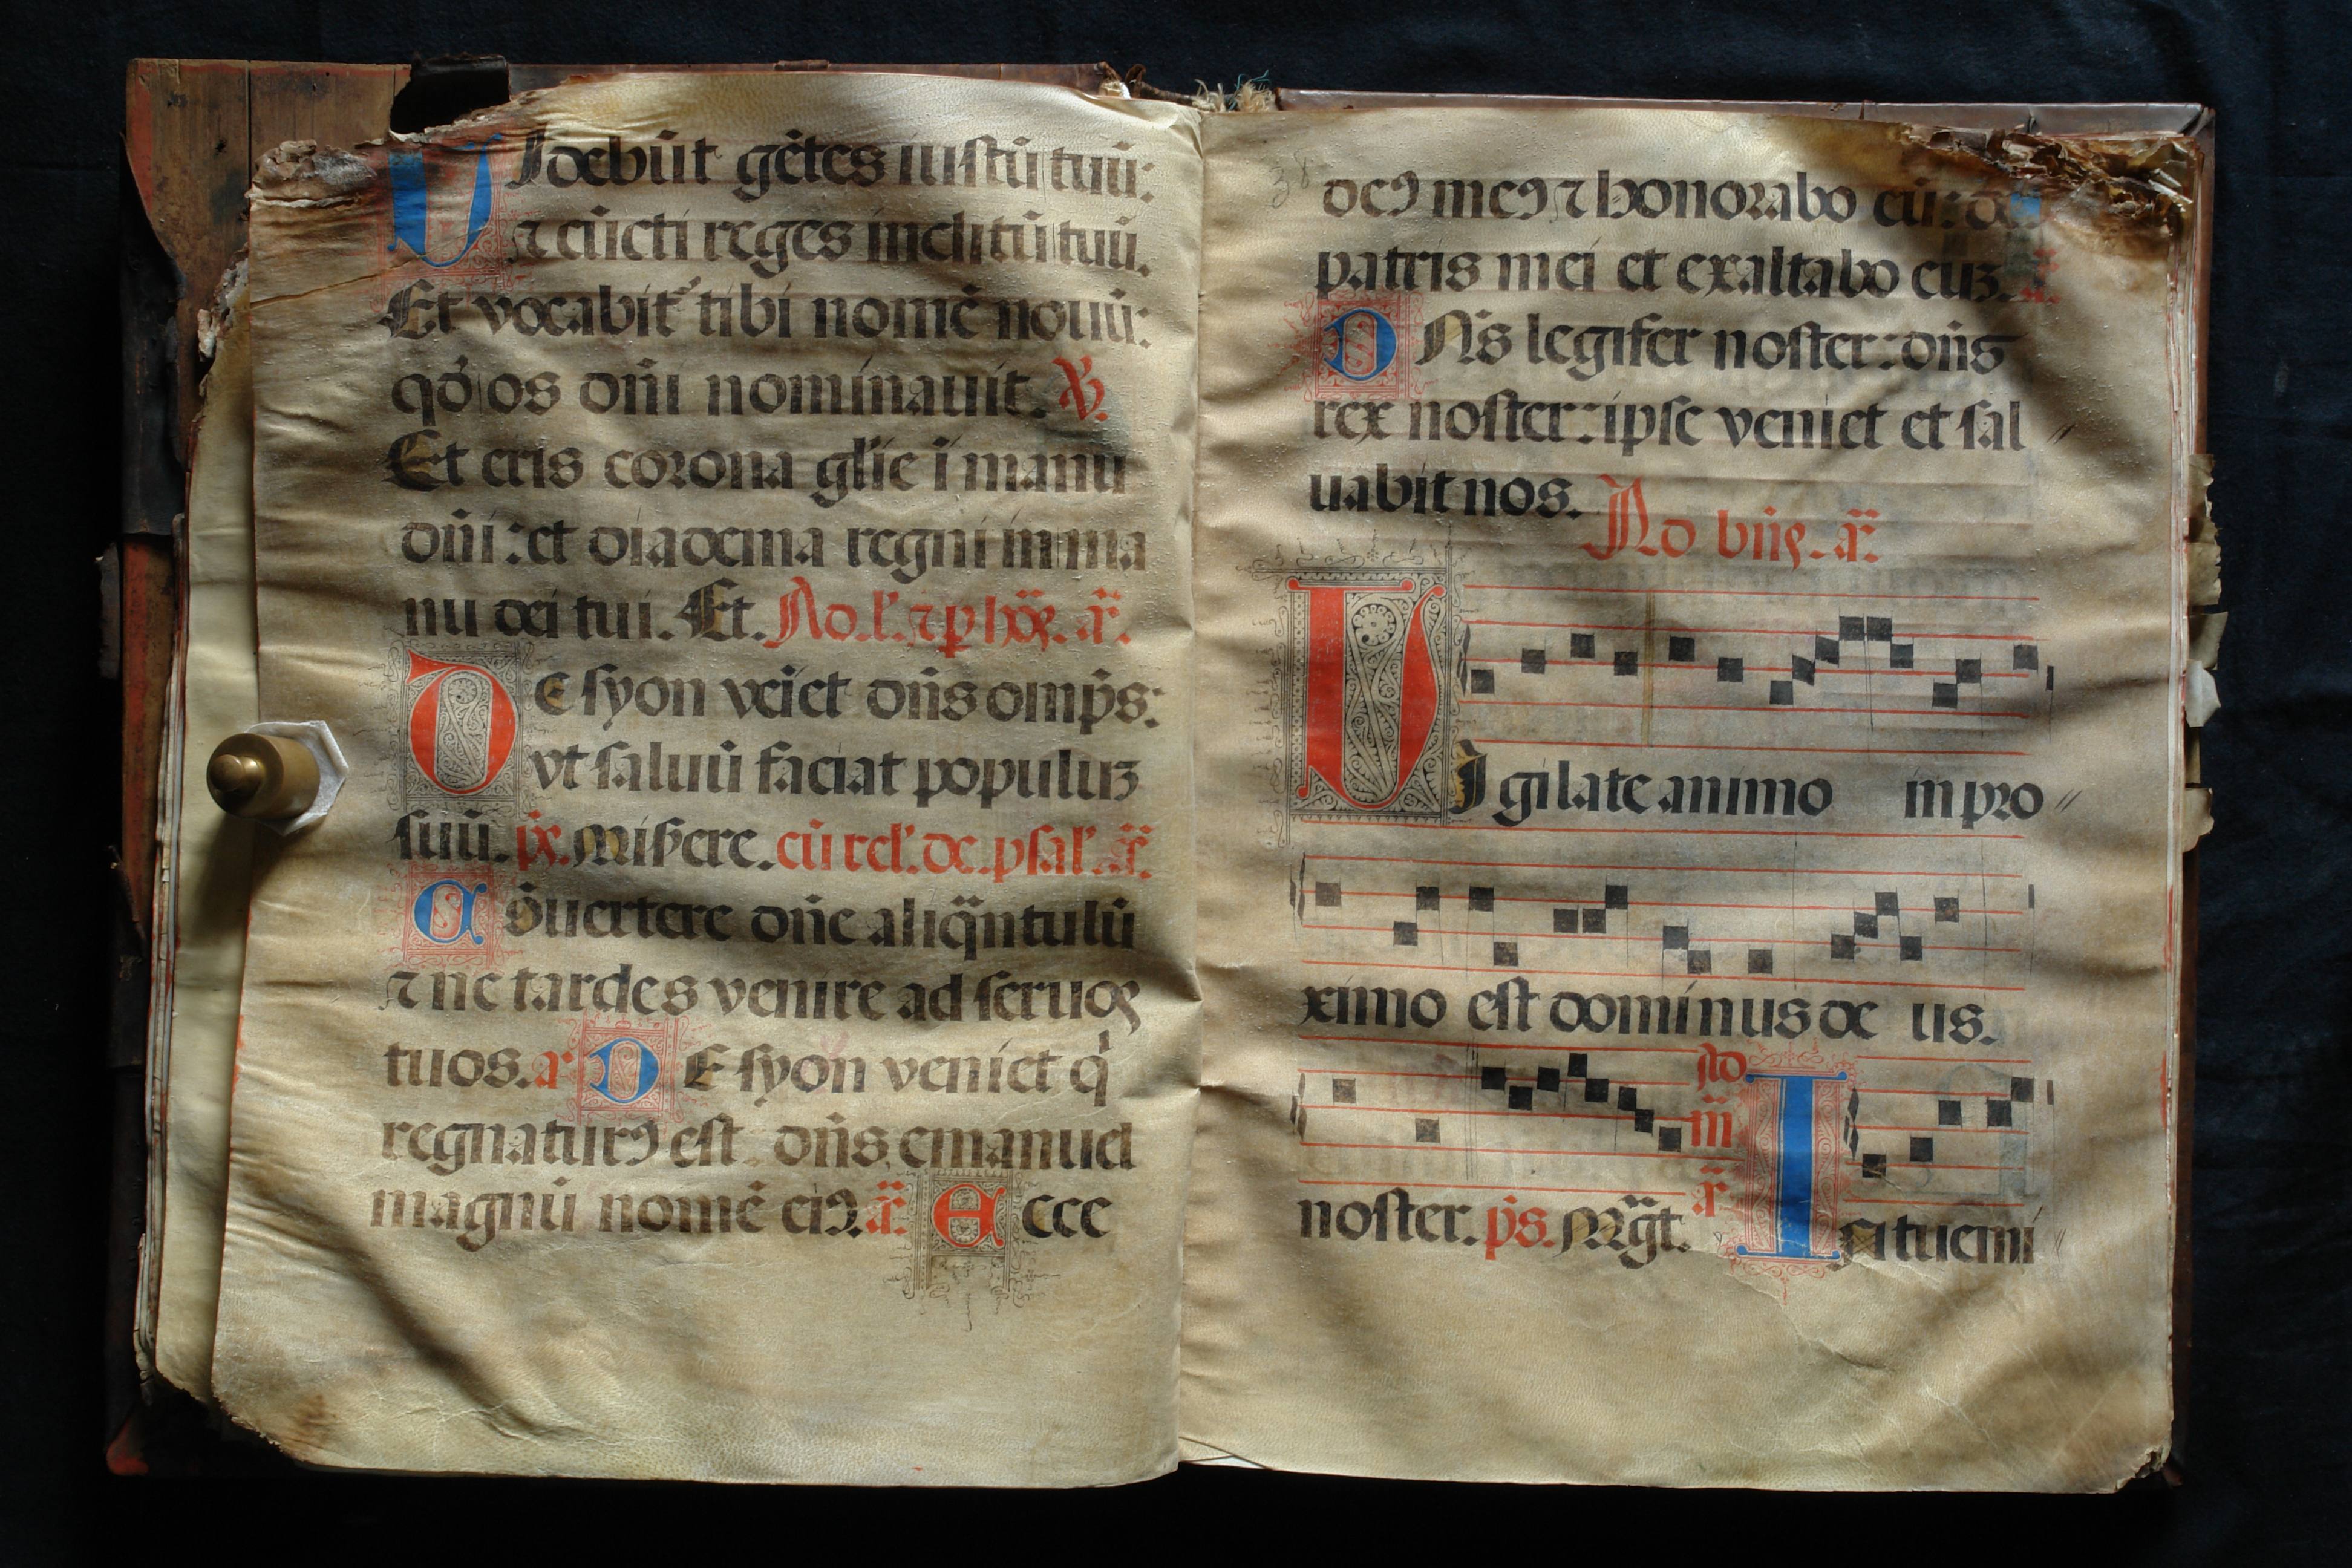 VIdebūt gētes iustū tuū:
⁊ cūcti reges inclitū tuū.
Et vocabit᷑ tibi nomē nouū:
qđ os dñi nominauit. ℣.
Et eris corona glīe ī manu
dñi: et diadema regni in ma
nu dei tui. Et. Ad .l'. ⁊ p hōꝝ. añ.
DE syon veīet dñs omp̄s:
vt saluū faciat populuꝫ
suū. p̄s. Miẜere. cū rel'. de. psal'. añ.
Aꝺ̄uertere dñe aliq̄ntulū
⁊ ne tardes venire ad seruos
tuos. añ DE syon veniet q̇
regnaturꝯ est dñs emanuel
magnū nomē eiꝯ. añ Ecce
38
deꝯ meꝯ ⁊ honorabo eū: de
patris mei et exaltabo euꝫ. añ.
DNs̄ legifer noster: dñs
rex noster: ipse veniet et sal //
uabit nos. Ad bñs. añ.
VIgilate animo in pro //
ximo est dominus de us.
noster. p̄s. Mḡt. Ad m̄ añ Isi tuemi //